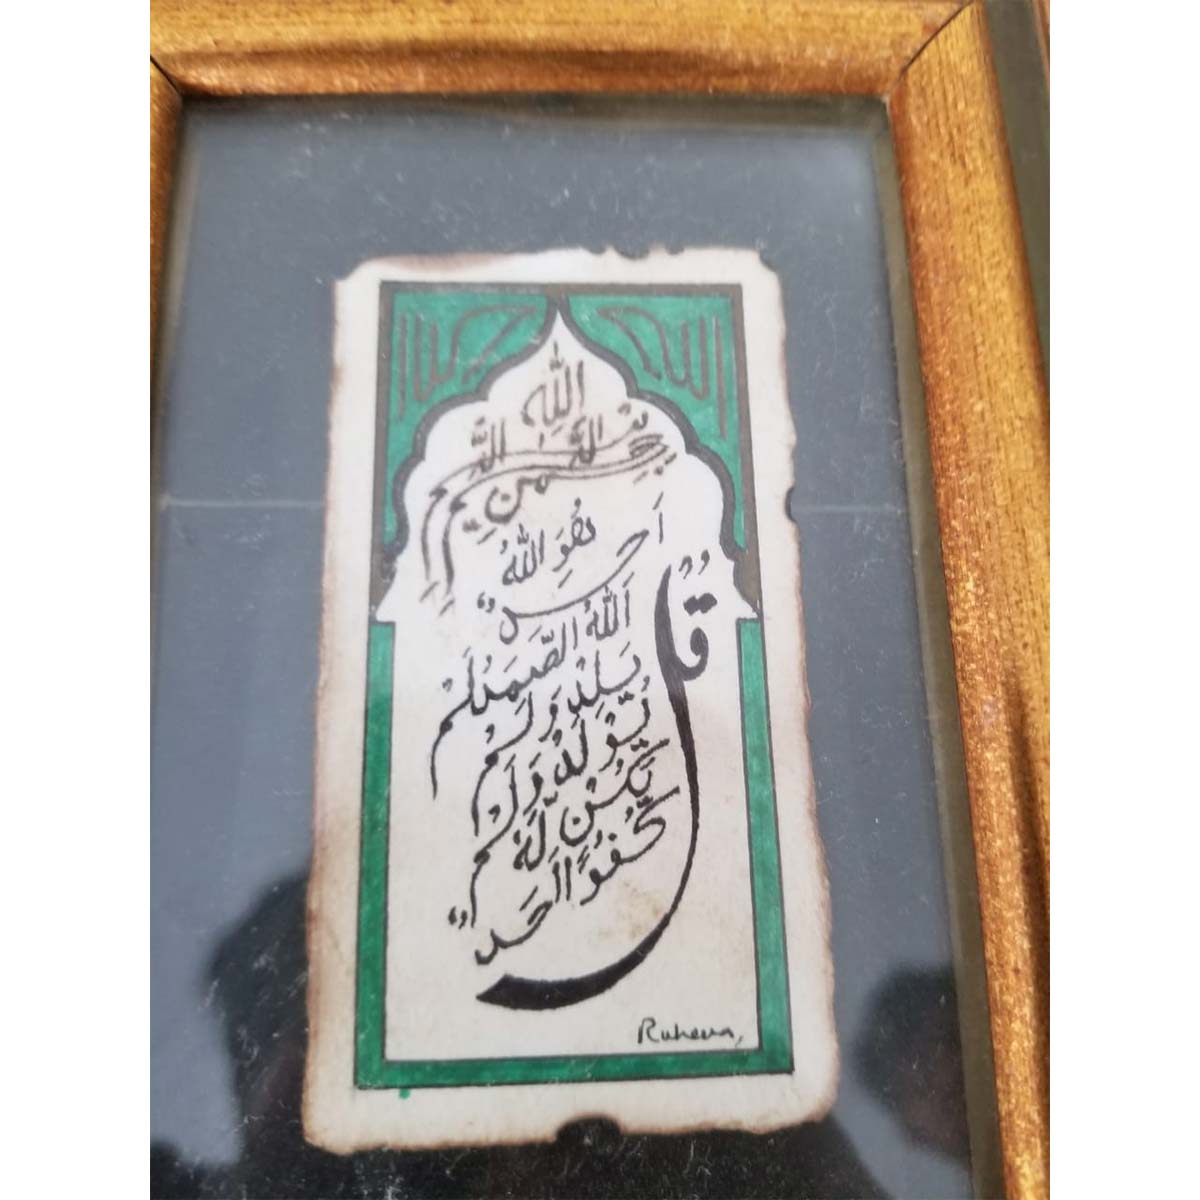 الله
الله
بِسْمِ اللهِ الرَّحْمٰنِ الرَّحِيْمِ
قُلْ هُوَ اللهُ
اَحَدٌ
اَللهُ الصَّمَدُ لَمْ
يَلِدْ وَلَمْ
يُوْلَدْ وَلَمْ
يَكُنْ لَّهٗ
كُفُوًا اَحَدٌ
Raheena,